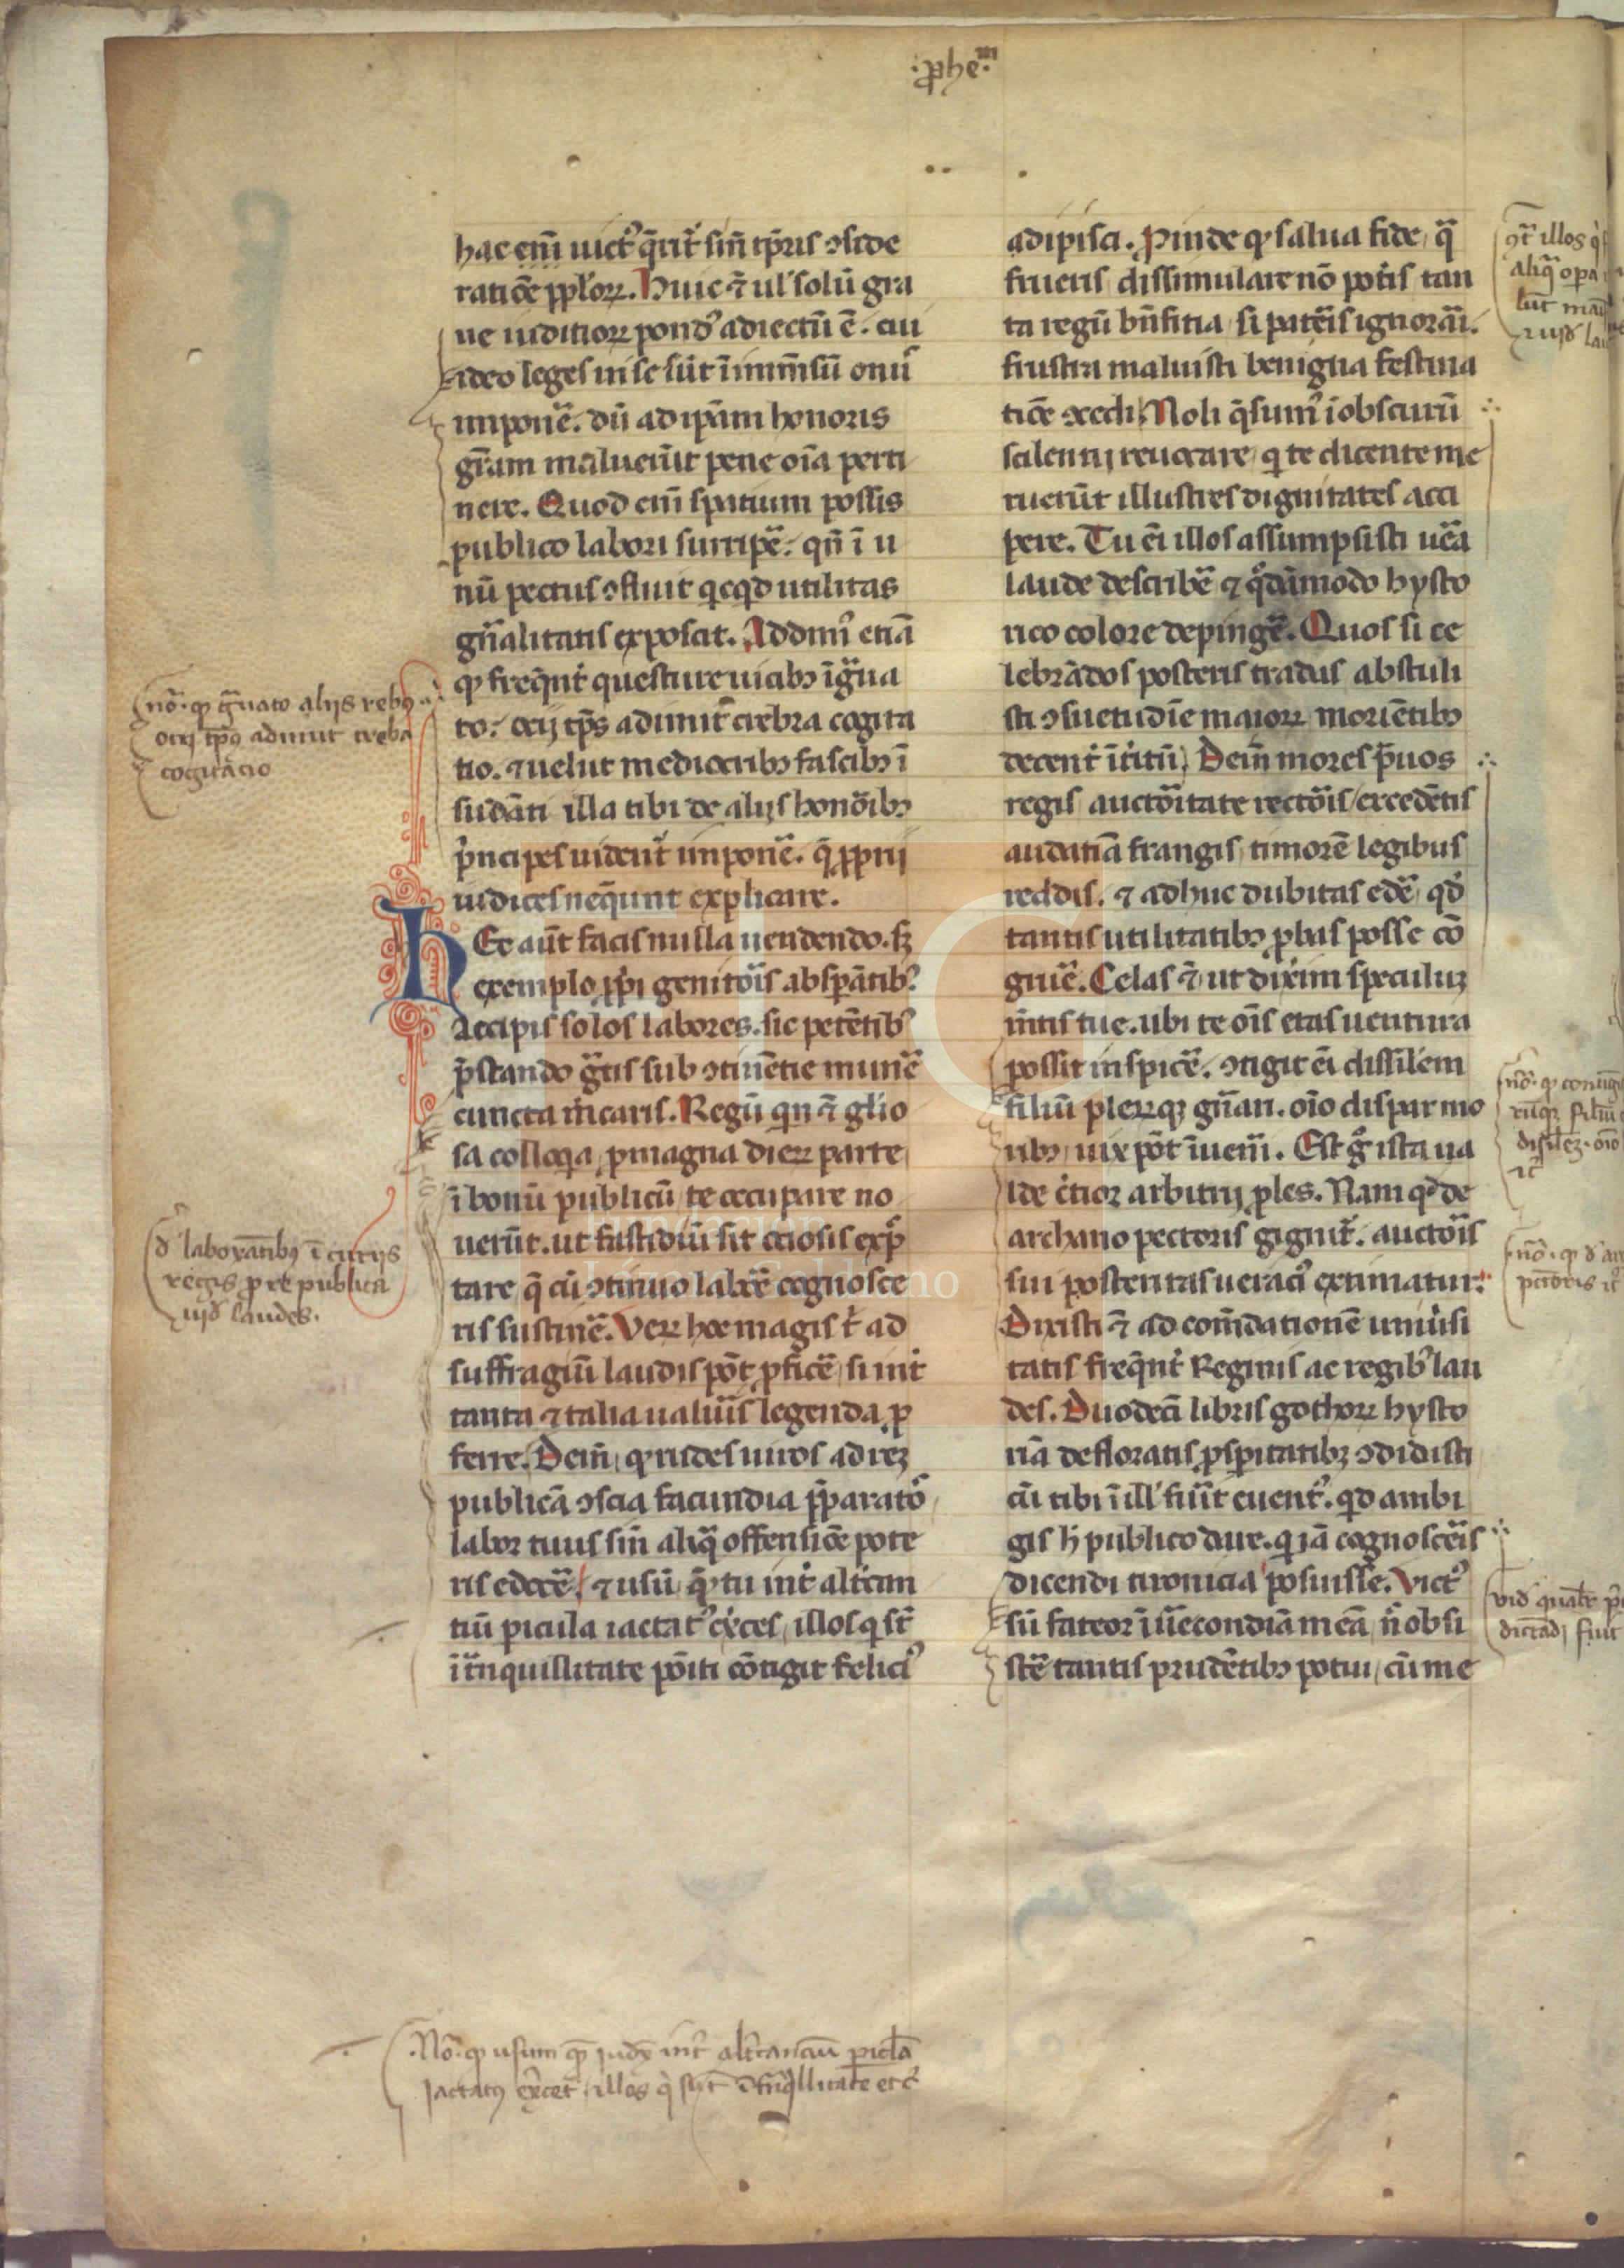 ·ꝓhe.ᵐ
hac eni᷒ uict᷒ q̄rit᷑ sin̄ tp̄ris ↄside
ratiōe pp̄l'oꝝ. Huic ⁊̄ ul' solū gra
ue iuditioꝝ pond᷒ adiectū ē. cui
ideo leges in se sūt īmm̄sū onus
imponē. dū ad ip̄am honoris
gr̄am maluerūt pene oīa perti
nere. Quod eni᷒ spatium possis
publico labori surripē. qn̄ ī u
nū pectus ↄfluit qͥcqͥd utilitas
gn̄alitatis exposcit. Addim᷒ etiā
ꝙ freq̄nt᷑ questure uicibꝫ īgͣua
to. ocij tp̄s adimit crebra cogita
tio. ⁊ uelut mediocribꝫ fascibꝫ ī
sudāti illa tibi de alijs honōibꝫ
pͥncipes uident᷑ imponē. q̄ ꝓprij
iudices neq̄unt explicare.
Hec aūt facis nulla uendendo. sꝫ
exemplo ip̄i genitōis. absꝑātibꝫ
Accipis solos labores. sic petētibꝫ
p̄stando gͣtis sub ↄtinētie munē
cuncta m̄caris. Regū qn ⁊̄ gl'io
sa colloqͥa ꝓ magna dieꝝ parte
ī bonū publicū te occupare no
uerūt. ut fastidiū sit ociosis exp̄
tare q̄ cū ↄtinuo labōre cognosce
ris sustinē. Veꝝ hoc magis t᷑ ad
suffragiū laudis pōt ꝓficē si int᷑
tanta ⁊ talia ualuīs legenda ꝓ
ferre. Dein̄ qͥ rudes uiros ad rēꝫ
publicā ↄscia facundia p̄parato᷒
labor tuus sin̄ aliqͣ offensiōe pote
ris edocē. ⁊ usū qͤ tu int᷑ alt᷑can
tiū ꝑicula iactat᷒ ex᷑ces, illos qͥ st̄
ī tͣnquillitate pōiti cōtigit felici᷒
adipisci. Proinde qͥ salua fide, qͣ
frueris dissimulare nō pot᷑is tan
ta regū bn̄fitia si patēis ignorāi.
frustra maluisti benigna festina
tiōe exedi. Noli q̄sum᷒ ī obscurū
silentij reuocare qͥ te dicente me
ruerūt illustres dignitates acci
pere. Tu ei᷒ illos assumpsisti uēa
laude describē ⁊ qͦdāmodo hysto
rico colore depingē. Quos si ce
lebrādos posteris tradas abstuli
sti ↄsuetudīe maioꝝ moriētibꝫ
decent᷑ īt᷑itū. Dein̄ mores p̄uos
regis auctōitate rectōis excedētis
audatiā frangis timorē legibus
reddis. ⁊ adhuc dubitas edē qd᷒
tantis utilitatibꝫ ꝓbas posse cō
gruē. Celas ⁊̄ ut dixim᷒ speculuꝫ
m̄tis tue. ubi te oīs etas uentura
possit inspicē. ↄtigit ei᷒ dissil'em
filiū plerūqꝫ gn̄ari. oīo dispar mo
ribꝫ uix pōt īuenīi. Est gͦ ista ua
lde c᷑tior arbitrij ꝓles. Nam qͦd de
archano pectoris gignit᷑. auctōis
sui posteritas ueraci᷒ extimatur.
Dixisti ⁊̄ ad com̄dationē uniu᷑si
tatis freq̄nt᷑ Reginis ac regibꝫ lau
des. Duodecī libris gothoꝝ hysto
riā defloratis ꝓsꝑitatibꝫ ↄdidisti
cū tibi ī ill' fuīt euent᷒. qͥd ambi
gis h̄ publico dare. qͥ iā cognoscēis
dicendi tironicia posuisse. Vict᷒
sū fateor ī u᷑econdiā meā n̄ obsi
stē tantis prudētibꝫ potui, cū me
nō. ꝙ gͣuato alijs rebꝫ
ocij tp̄s adimit creba
cogitacio
d᷒ laborātibꝫ ī curijs
regis ꝓ re publica
uid᷒ laudes.
ↄt᷑ illos qͥ
aliqͣ opa
nō. ꝙ contig
rūqꝫ filiū
disil'eꝫ. oīo
ꝛc̄
nō. ꝙ d᷒ ar
pectoris ꝛc̄
uid᷒ qualr̄
dictādi fuit
Nō. ꝙ usum qͤ iudex int᷑ alt᷑cantiū ꝑicl̄a
Jactatꝫ ex᷑cet illos qͥ st̄ ī tͣnqͥllitate etc᷒